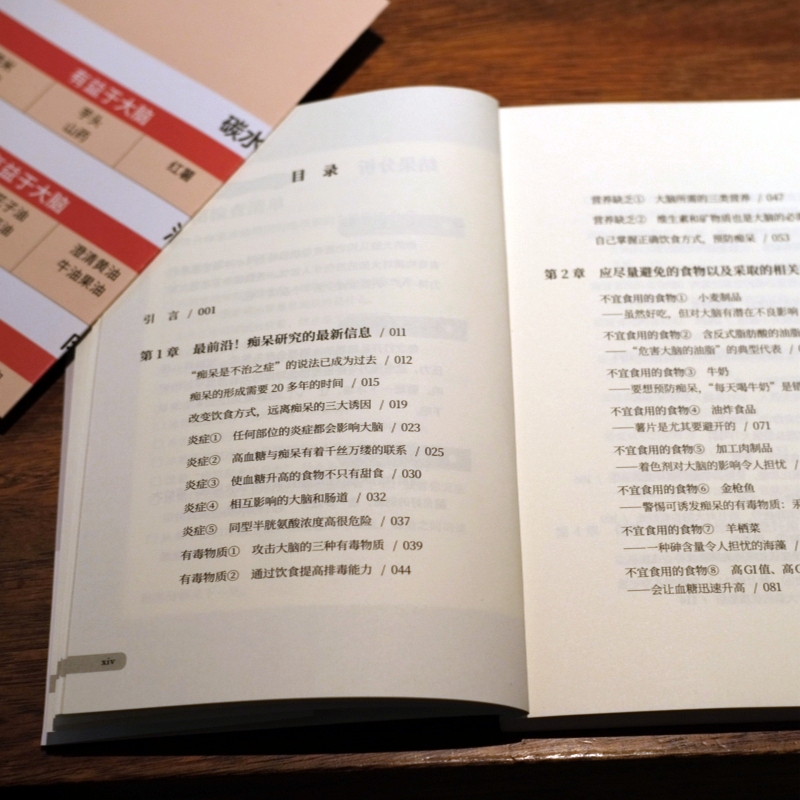 有益于大脑
芋头
山药
红薯
碳水
益于大脑
子油
澄清黄油
牛油果油
目 录
引 言 / 001
第1章 最前沿！痴呆研究的最新信息 / 011
“痴呆是不治之症”的说法已成为过去 / 012
痴呆的形成需要 20 多年的时间 / 015
改变饮食方式，远离痴呆的三大诱因 / 019
炎症① 任何部位的炎症都会影响大脑 / 023
炎症② 高血糖与痴呆有着千丝万缕的联系 / 025
炎症③ 使血糖升高的食物不只有甜食 / 030
炎症④ 相互影响的大脑和肠道 / 032
炎症⑤ 同型半胱氨酸浓度高很危险 / 037
有毒物质① 攻击大脑的三种有毒物质 / 039
有毒物质② 通过饮食提高排毒能力 / 044
xiv
营养缺乏① 大脑所需的三类营养 / 047
营养缺乏② 维生素和矿物质也是大脑的必
自己掌握正确饮食方式，预防痴呆 / 053
第2章 应尽量避免的食物以及采取的相关
不宜食用的食物① 小麦制品
——虽然好吃，但对大脑有潜在不良影响
不宜食用的食物② 含反式脂肪酸的油脂
——“危害大脑的油脂”的典型代表 /
不宜食用的食物③ 牛奶
——要想预防痴呆，“每天喝牛奶”是错
不宜食用的食物④ 油炸食品
——薯片是尤其要避开的 / 071
不宜食用的食物⑤ 加工肉制品
——着色剂对大脑的影响令人担忧 /
不宜食用的食物⑥ 金枪鱼
——警惕可诱发痴呆的有毒物质：汞
不宜食用的食物⑦ 羊栖菜
——一种砷含量令人担忧的海藻 /
不宜食用的食物⑧ 高GI值、高G
——会让血糖迅速升高 / 081